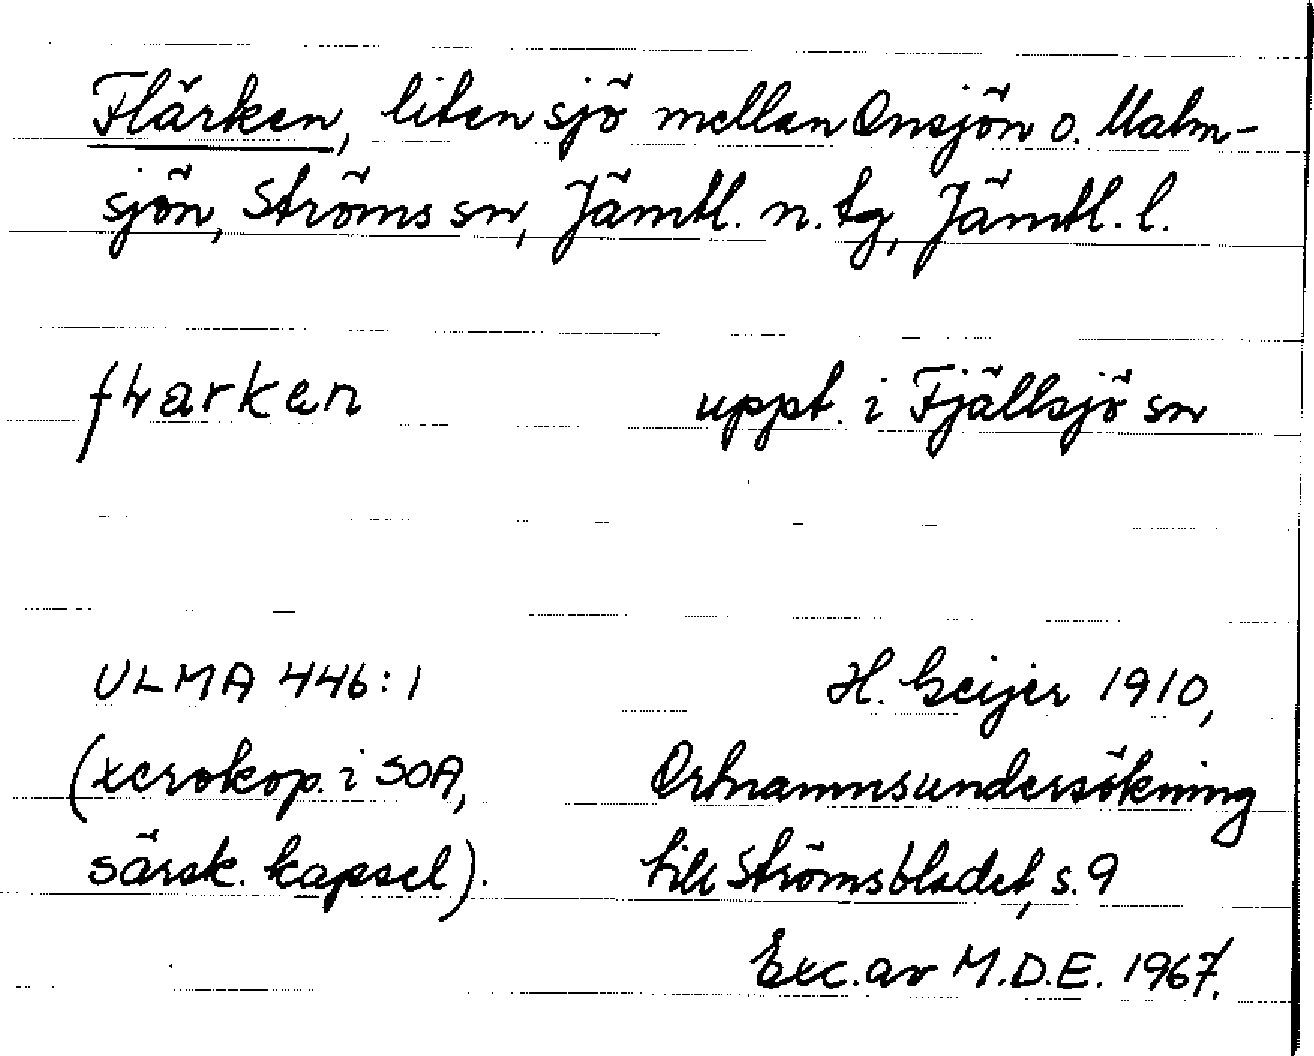 Flärken, liten sjö mellan Onsjön o. Malm-
sjön, Ströms sn, Jämtl. n. tg, Jämtl. l.
uppt. i Fjällsjö sn
ULMA 446:1 H. Geijer 1910,
(xerokop. i SOA, Ortnamnsundersökning
särsk. kapsel). till Strömsbladet, s. 9
Exc. av M.D.E. 1967.